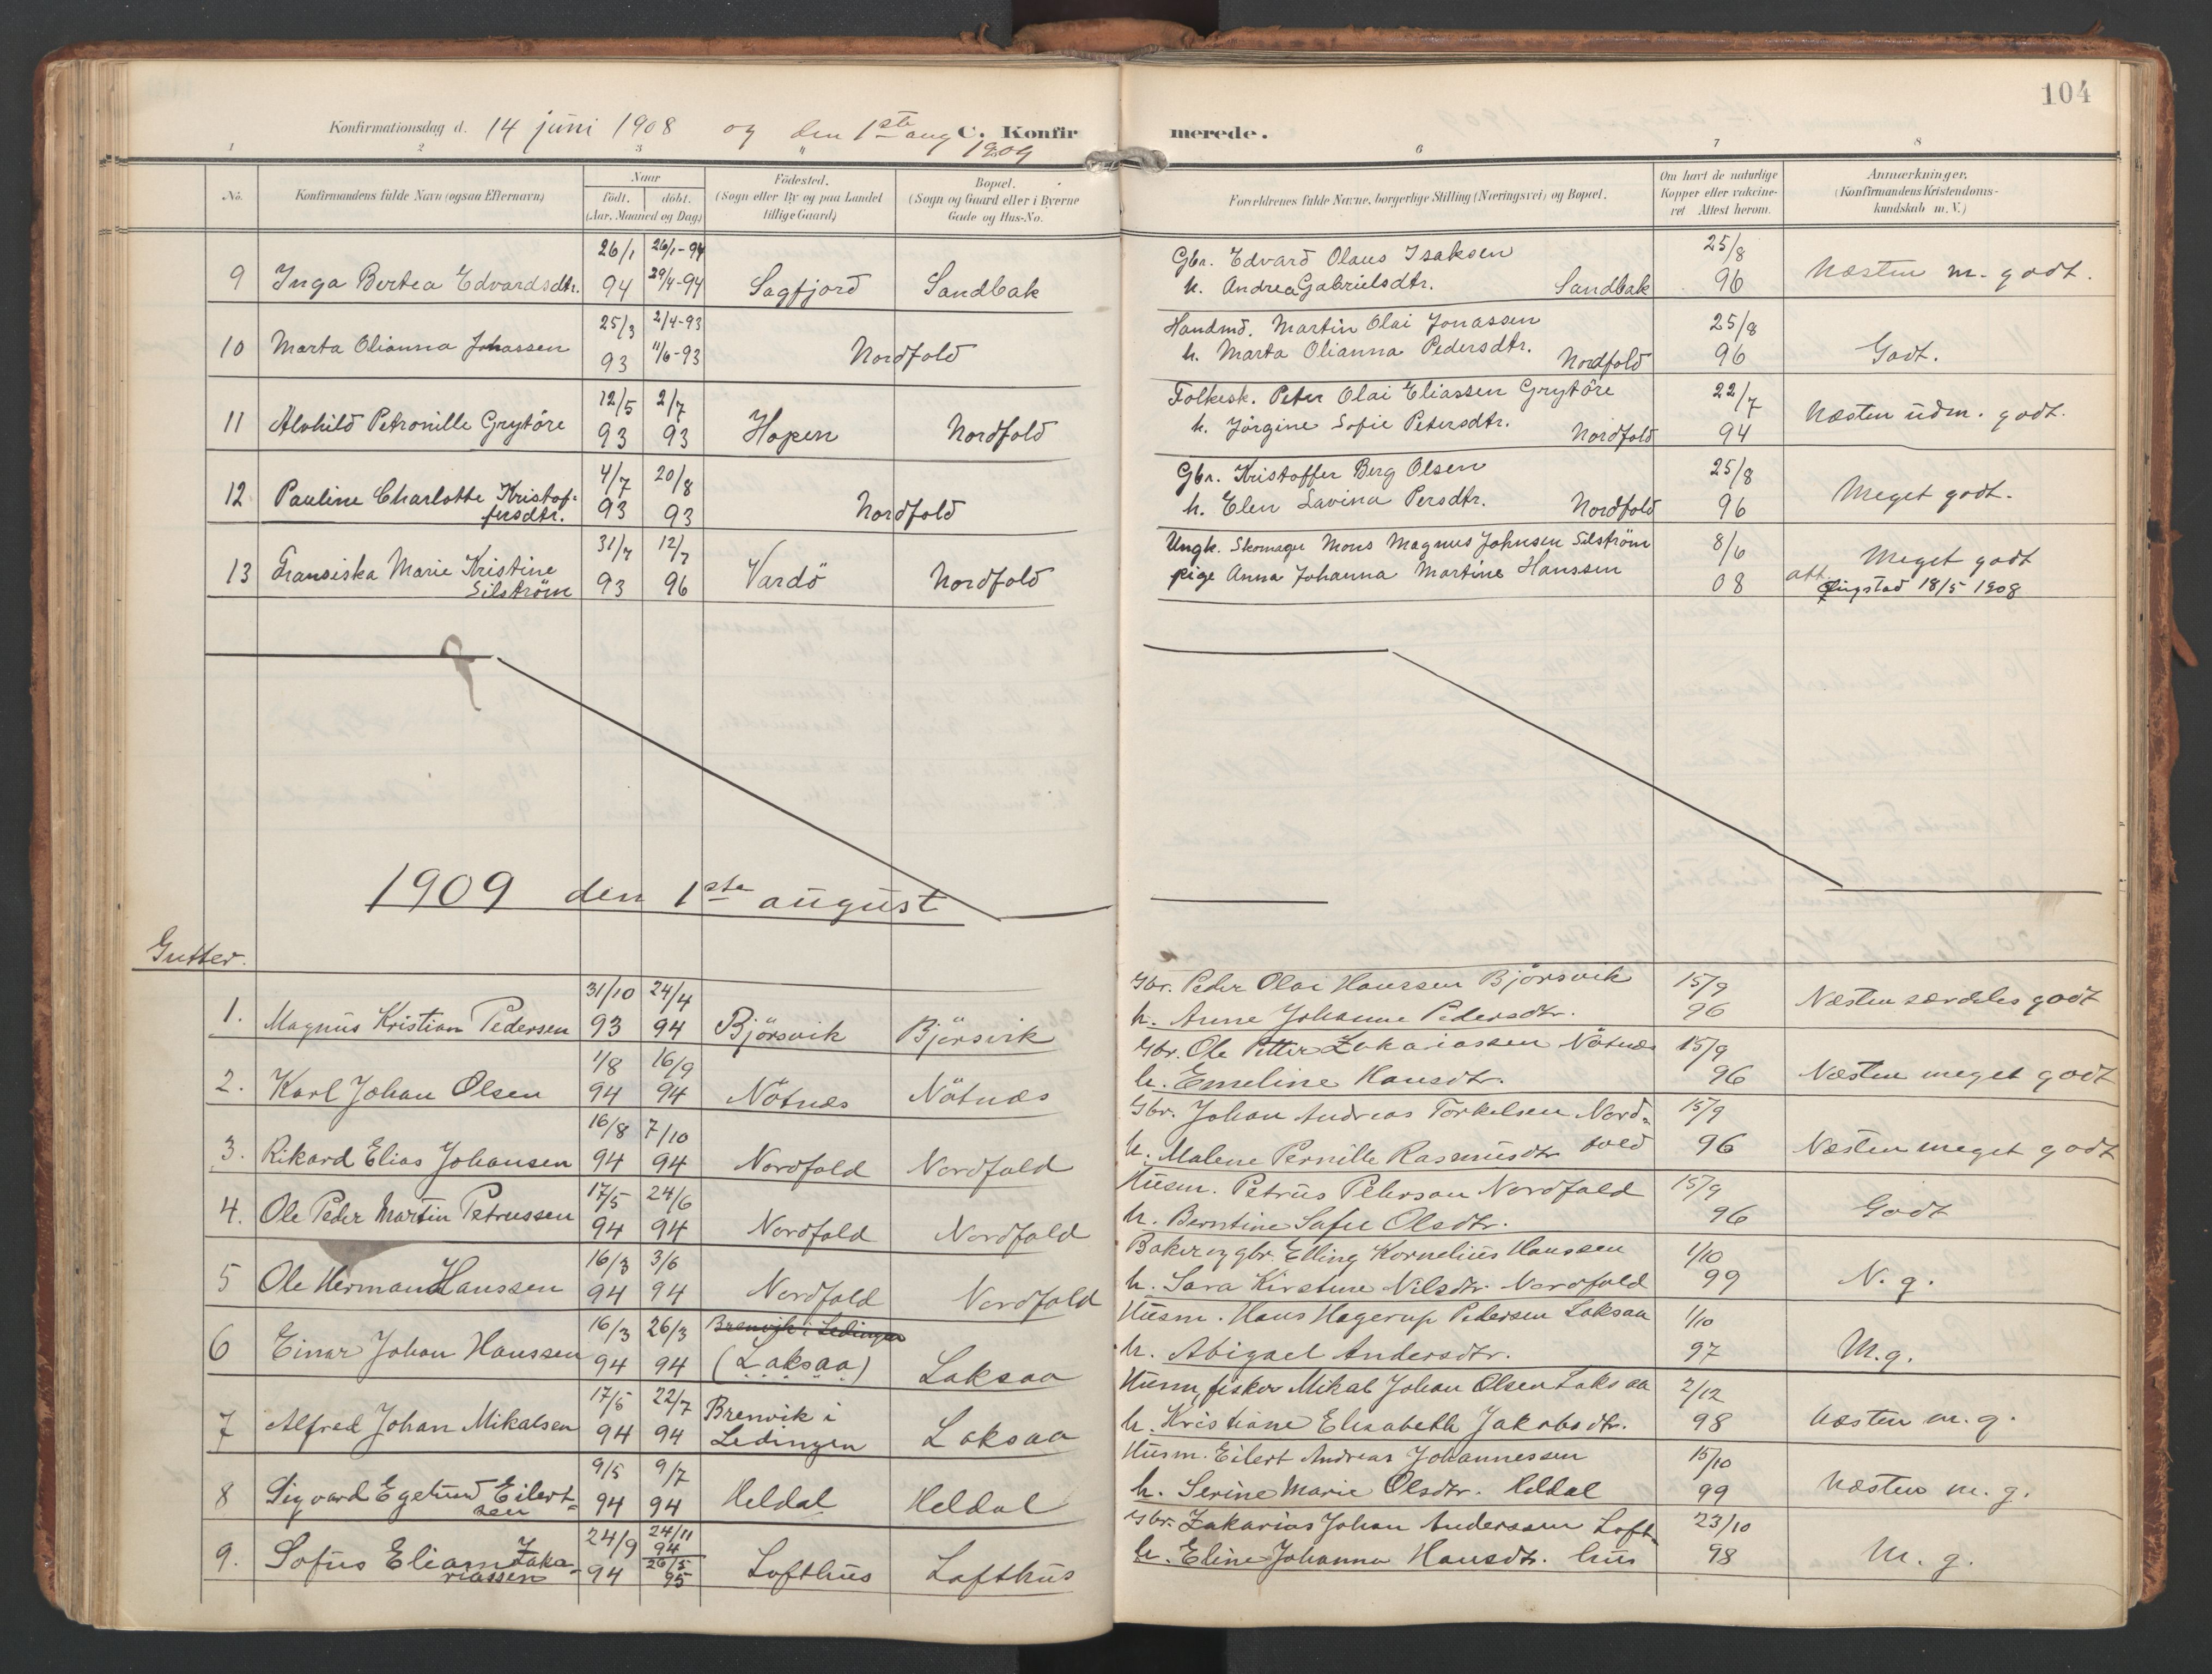 104
Konfirmationsdag d. 14 juni 1908 og den 1ste aug 1909 C. Konfirmerede.
1 2 3 6 7 8
No. Konfirmandens fulde Navn (ogsaa Efternavn)
Naar
født. døbt.
(Aar, Maaned og Dag)
Fødested.
(Sogn eller By og paa Landet
tillige Gaard)
Bopæl.
(Sogn og Gaard eller i Byerne
Gade og Hus-No.
Forældrenes fulde Navne, borgerlige Stilling (Næringsvei) og Bopæl.
Om havt de naturlige
Kopper eller vakcine-
ret Attest herom.
Anmærkninger.
(Konfirmandens Kristendoms-
kundskab m. V.)
26/1 26/1-94 Gbr. Edvard Olaus Isaksen 25/8
9 Inga Bertea Edvardsdtr. 94 29/4-94 Sagfjord Sandbak h. Andrea Gabrielsdtr. Sandbak 96 Næsten m. godt.
25/3 2/4-93 Handmd. Martin Olai Jonassen 25/8
10 Marta Olianna Johassen 93 11/6-93 Nordfold h. Marta Olianna Pedersdtr. Nordfold 96 Godt.
12/5 2/7 Folkesk. Peter Olai Eliassen Grytöre 22/7
11 Alvhild Petronille Grytöre 93 93 Hopen Nordfold h. Jörgine Sofie Petersdtr. Nordfold 94 Næsten udm. godt.
4/7 20/8 Gbr. Kristoffer Berg Olsen 25/8
12 Pauline Charlotte Kristof-
fersdtr. 93 93 Nordfold h. Elen Lavina Persdtr. Nordfold 96 Meget godt.
31/7 12/7 Ungk. Skomager Mons Magnus Johnsen Silström 8/6
13 Fransiska Marie Kristine
Silström 93 96 Vardö Nordfold pige Anna Johanna Martine Hanssen 08 Meget godt
att. 18/5 1908
1909 den 1ste august
Gutter.
31/10 24/4 Gbr. Peder Olai Hanssen Björsvik 15/9
1. Magnus Kristian Pedersen 93 94 Björsvik Björsvik h. Anne Johanne Pedersdtr. 96 Næsten særdeles godt
1/8 16/9 Gbr. Ole Petter Zakariassen Nötnæs 15/9
2. Karl Johan Olsen 94 94 Nötnæs Nötnæs h. Emeline Hansdtr. 96 Næsten meget godt
16/8 7/10 Gbr. Johan Andreas Torkelsen Nord- 15/9
3. Rikard Elias Johansen 94 94 Nordfold Nordfold h. Malene Pernille Rasmusdtr fold 96 Næsten meget godt
17/5 24/6 Husm. Petrus Peterson Nordfold 15/9
4. Ole Peder Martin Petrussen 94 94 Nordfold Nordfold h. Berntine Sofie Olsdtr. 96 Godt
16/3 3/6 Baker og gbr. Elling Kornelius Hanssen 1/10
5 Ole Herman Hanssen 94 94 Nordfold Nordfold h. Sara Kirstine Nilsdtr Nordfold 99 N. g.
16/3 26/3 Brenvik i Ledingen Husm. Hans Hagerup Pedersen Laksaa 1/10
6 Einar Johan Hanssen 94 94 (Laksaa) Laksaa h. Abigael Andersdtr. 97 M.g.
17/5 22/7 Brenvik i Husm, fisker Mikal Johan Olsen Laksaa 2/12
7 Alfred Johan Mikalsen 94 94 Ledingen Laksaa h. Kristiane Elisabeth Jakobsdtr. 98 Næsten m. g.
9/5 9/7 Husm. Eilert Andreas Johannessen 15/10
8 Sigvard Egelund Eilert-
sen 94 94 Heldal Heldal h. Serine Marie Olsdtr. Heldal 99 Næsten m. g.
24/9 24/11 94 Gbr. Zakarias Johan Anderssen Loft- 23/10
9. Sofus Eliam Zaka-
riassen 94 26/5 95 Lofthus Lofthus h. Eline Johanna Hansdtr. hus 98 M. g.